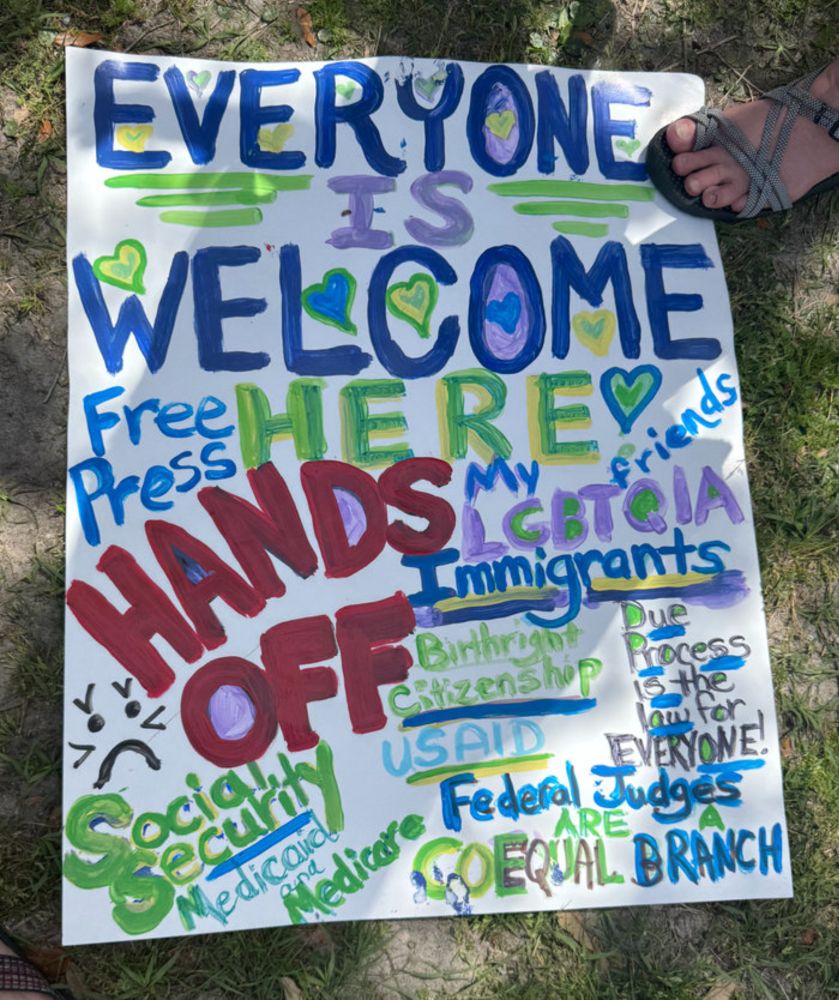 EVERYONE
IS
WELCOME
HERE
Free
Press
HANDS
OFF
My
friends
LGBTQIA
Immigrants
Birthright
Citizenship
USAID
Due
Process
is the
law for
EVERYONE!
Social
Security
Medicaid
and
Medicare
Federal Judges
ARE A
COEQUAL BRANCH